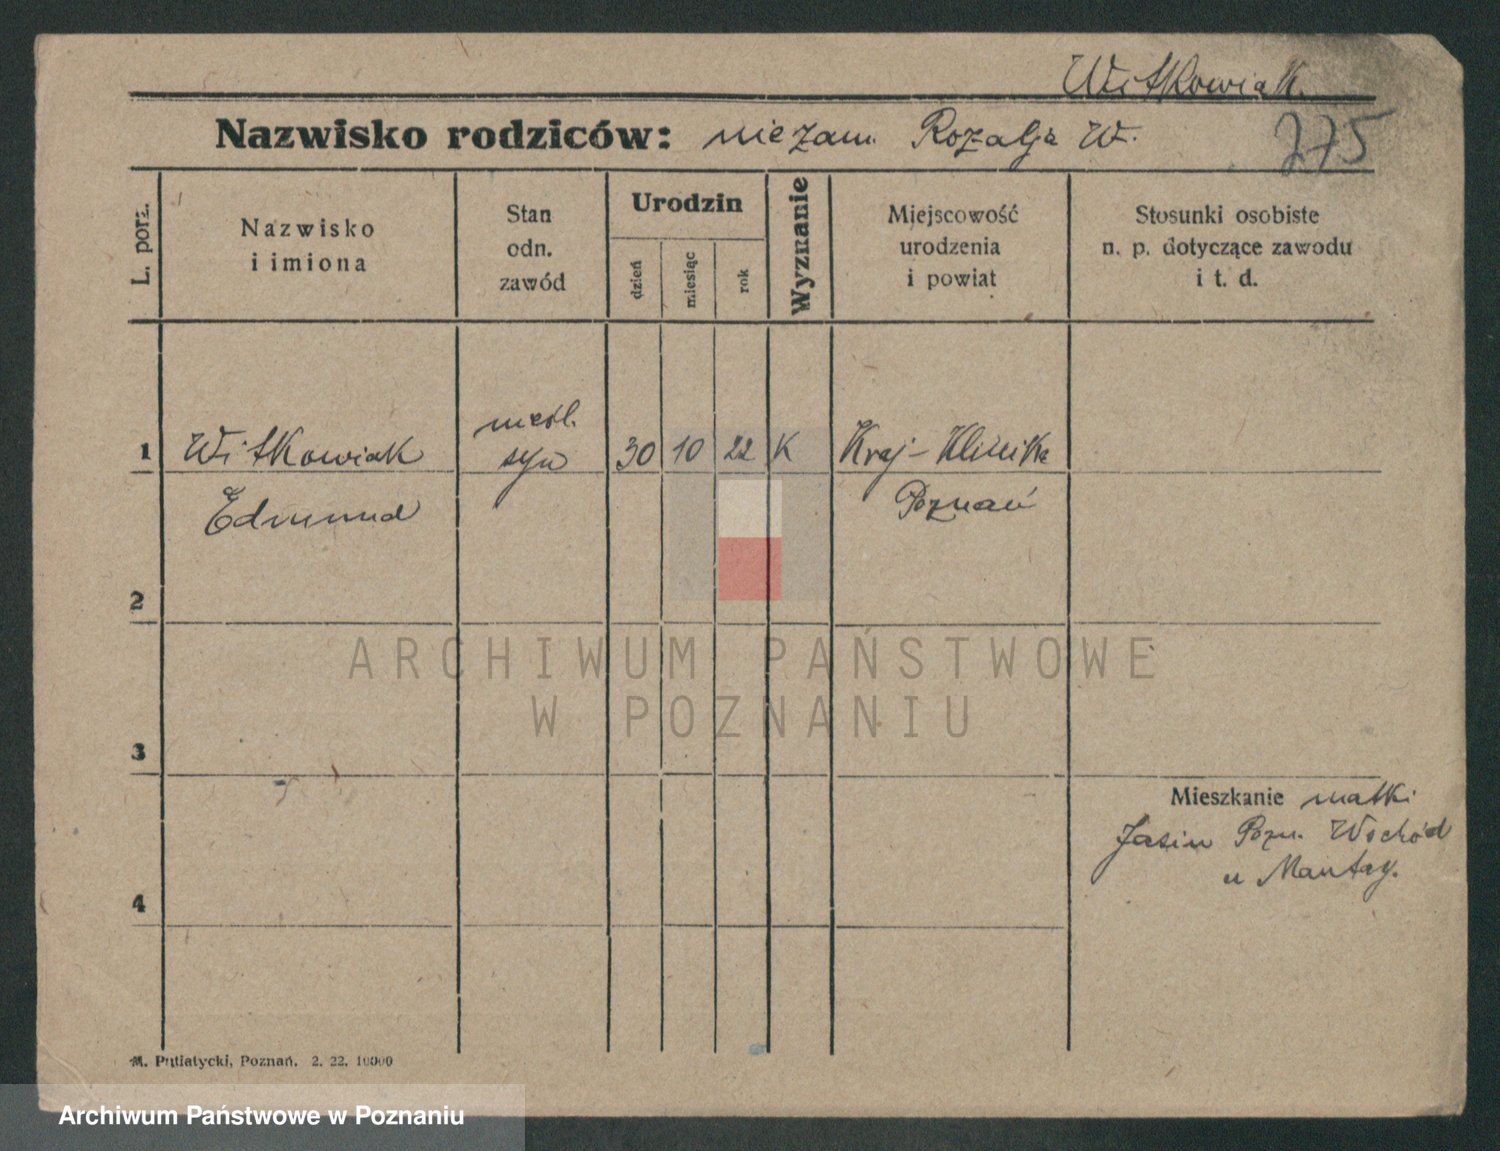 Witkowiak.
Nazwisko rodziców: niezam. Rozalja W.
275
L. porz.
Nazwisko
i imiona
Stan
odn.
zawód
Urodzin
dzień
miesiąc
rok
Wyznanie
Miejscowość
urodzenia
i powiat
Stosunki osobiste
n. p. dotyczące zawodu
i t. d.
1 Witkowiak nieśl. syn 30 10 22 K Kraj-Klinika
Edmund Poznań
2
3
4
Mieszkanie matki
Jasin Pozn. Wschód
u Mantay.
M. Putiatycki, Poznań. 2. 22. 10000
ARCHIWUM PAŃSTWOWE
W POZNANIU
Archiwum Państwowe w Poznaniu